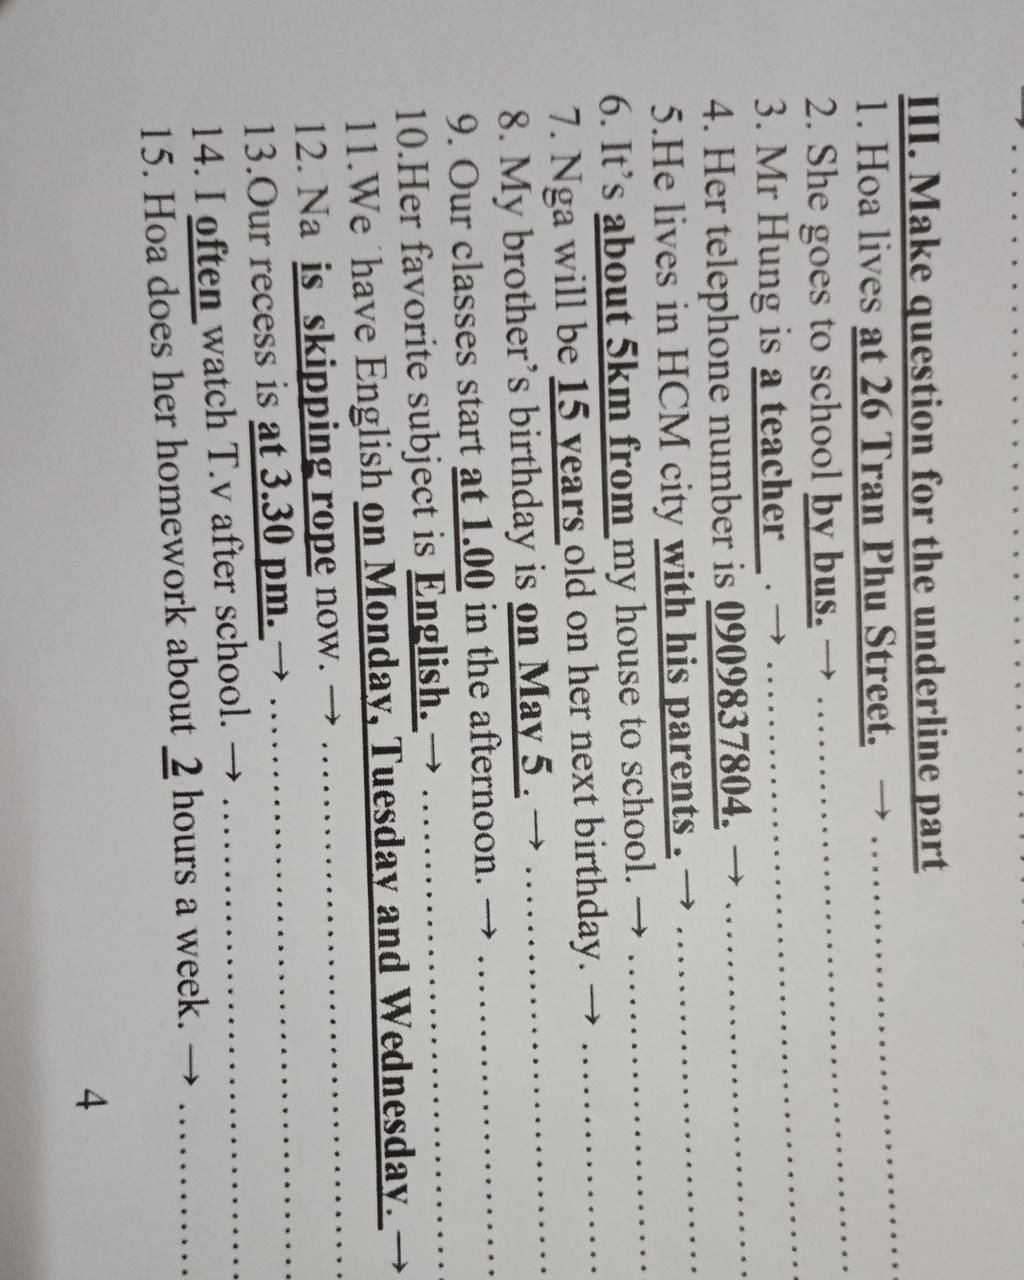 III. Make question for the underline part
1. Hoa lives at 26 Tran Phu Street. → ....................
2. She goes to school by bus. → ....................
3. Mr Hung is a teacher . → ....................
4. Her telephone number is 0909837804. → ....................
5.He lives in HCM city with his parents . → ....................
6. It's about 5km from my house to school. → ....................
7. Nga will be 15 years old on her next birthday. → ....................
8. My brother's birthday is on May 5 . → ....................
9. Our classes start at 1.00 in the afternoon. → ....................
10.Her favorite subject is English. → ....................
11.We have English on Monday, Tuesday and Wednesday. →
12. Na is skipping rope now. → ....................
13.Our recess is at 3.30 pm. → ....................
14. I often watch T.v after school. → ....................
15. Hoa does her homework about 2 hours a week. → ..........
4